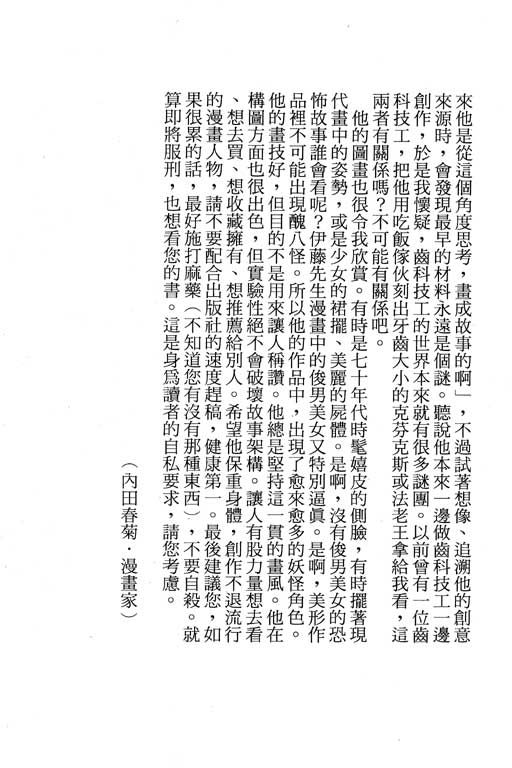 來他是從這個角度思考，畫成故事的啊」，不過試著想像、追溯他的創意
來源時，會發現最早的材料永遠是個謎。聽說他本來一邊做齒科技工一邊
創作，於是我懷疑，齒科技工的世界本來就有很多謎團。以前曾有一位齒
科技工，把他用吃飯傢伙刻出牙齒大小的克芬克斯或法老王拿給我看，這
兩者有關係嗎？不可能有關係吧。
他的圖畫也很令我欣賞。有時是七十年代時髦嬉皮的側臉，有時擺著現
代畫中的姿勢，或是少女的裙擺、美麗的屍體。是啊，沒有俊男美女的恐
怖故事誰會看呢？伊藤先生漫畫中的俊男美女又特別逼眞。是啊，美形作
品裡不可能出現醜八怪。所以他的作品中，出現了愈來愈多的妖怪角色。
他的畫技好，但目的不是用來讓人稱讚。他總是堅持這一貫的畫風。他在
構圖方面也很出色，但實驗性絕不會破壞故事架構。讓人有股力量想去看
、想去買、想收藏擁有、想推薦給別人。希望他保重身體，創作不退流行
的漫畫人物，請不要配合出版社的速度趕稿，健康第一。最後建議您，如
果很累的話，最好施打麻藥（不知道您有沒有那種東西），不要自殺。就
算即將服刑，也想看您的書。這是身爲讀者的自私要求，請您考慮。
（內田春菊．漫畫家）